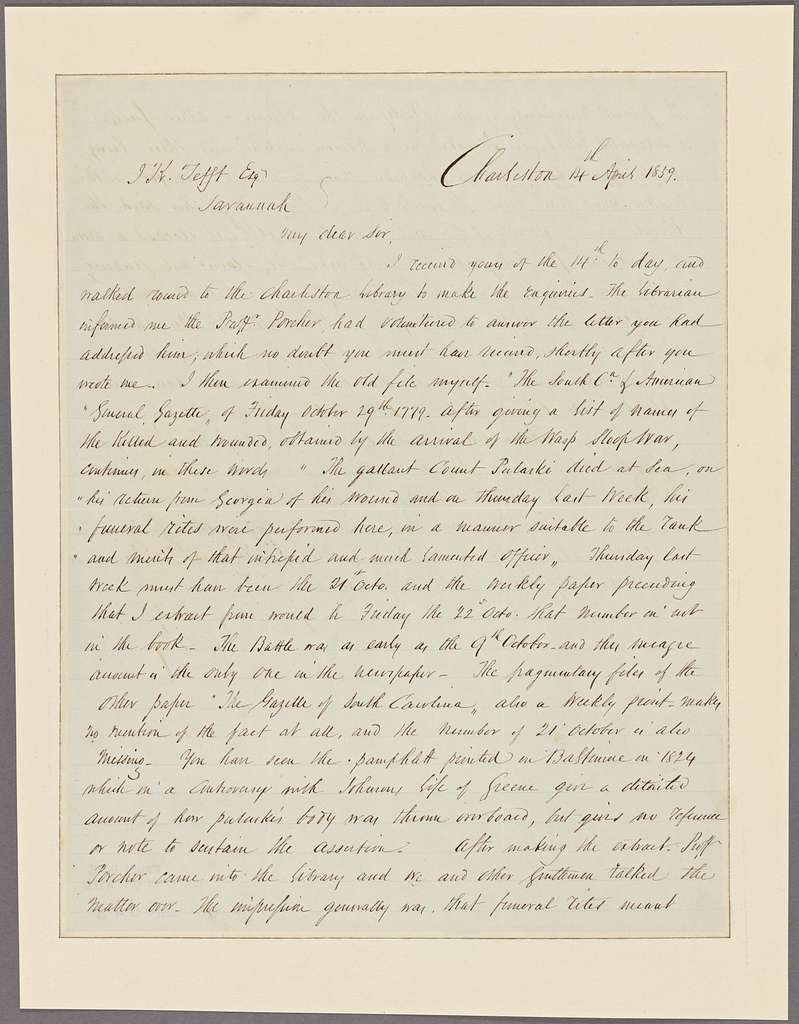 I K. Tefft Esqr
Charleston 14th April 1859.
Savannah
My dear Sir,
I received yours of the 14th to day, and
walked round to the Charleston Library to make the Enquiries. The Librarian
informed me the Proffr. Porcher, had volunteered to answer the letter you had
addressed him, which no doubt you must have received, shortly after you
wrote me. I then examined the old file myself. "The South Ca. & American
"General Gazette" of Friday October 29th 1779. after giving a list of names of
the Killed and wounded, obtained by the arrival of the Wasp Sloop War,
continues, in these words " The gallant Count Pulaski died at Sea, on
"his return from Georgia of his wound and on Thursday last Week, his
" funeral rites were performed here, in a manner suitable to the Rank
" and merits of that intrepid and much lamented officer" Thursday last
Week must have been the 21st Octo. and the weekly paper preceeding
that I extract from would be Friday the 22d Octo. that number is not
in the book - The Battle was as early as the 9th October - and this meagre
account is the only one in the newspaper - The fragmentary files of the
other paper "The Gazette of South Carolina" also a weekly print - makes
no mention of the fact at all, and the number of 21 October is also
Missing - You have seen the pamphlett printed in Baltimore in 1824
which in a controversy with Johnsons life of Greene give a detailed
account of how pulaski's body was thrown overboard, but gives no reference
or note to sustain the assertion. After making the extract - Proff
Porcher came into the Library and we and other Gentlemen talked the
matter over - The impression generally was, that funeral rites meant